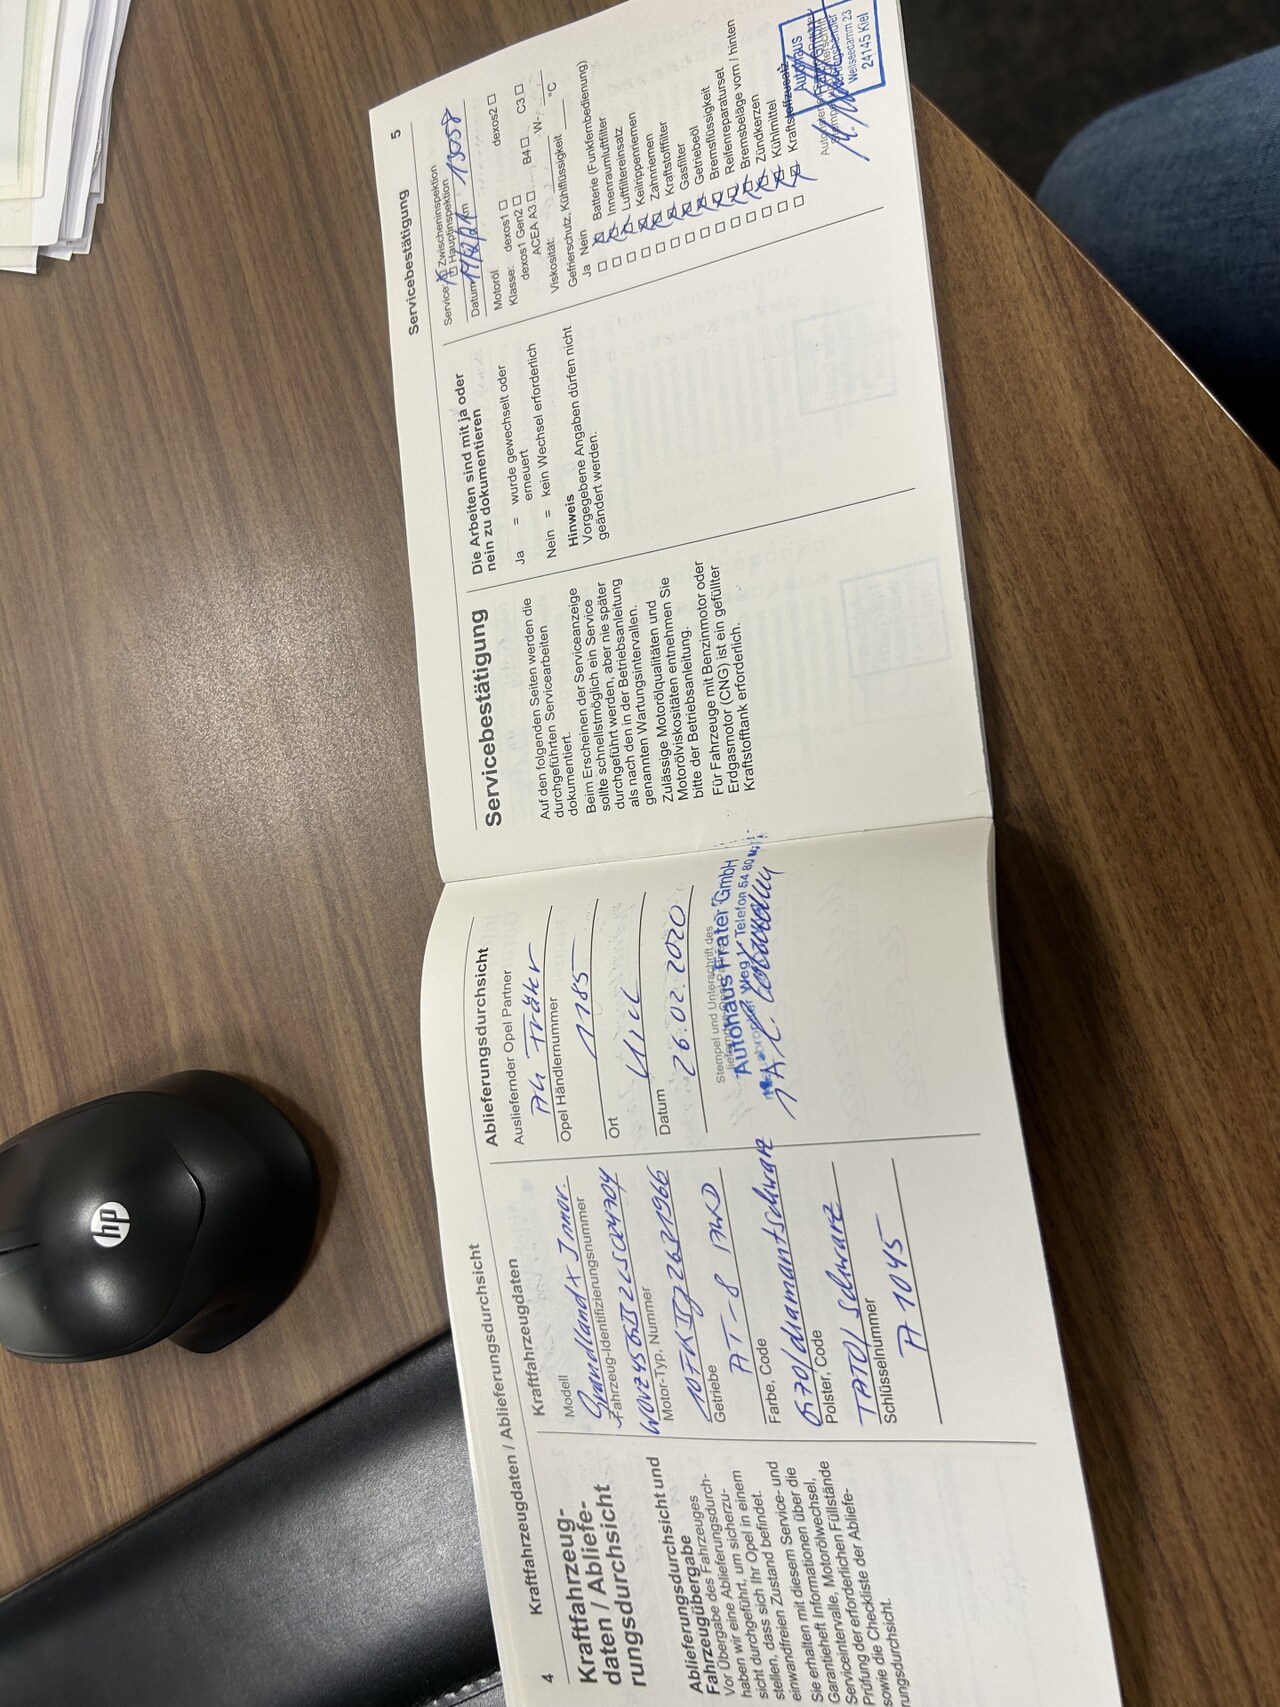 4
Kraftfahrzeugdaten / Ablieferungsdurchsicht
Kraftfahrzeug-
daten / Abliefe-
rungsdurchsicht
Ablieferungsdurchsicht und
Fahrzeugübergabe
Vor Übergabe des Fahrzeuges
haben wir eine Ablieferungsdurch-
sicht durchgeführt, um sicherzu-
stellen, dass sich Ihr Opel in einem
einwandfreien Zustand befindet.
Sie erhalten mit diesem Service- und
Garantieheft Informationen über die
Serviceintervalle, Motorölwechsel,
Prüfung der erforderlichen Füllstände
sowie die Checkliste der Abliefe-
rungsdurchsicht.
Kraftfahrzeugdaten
Modell
Grandland X Innov.
Fahrzeug-Identifizierungsnummer
Motor-Typ, Nummer
Getriebe
AT-8
Farbe, Code
diamantschwarz
Polster, Code
TATO/ Schwarz
Schlüsselnummer
A 1045
Ablieferungsdurchsicht
Ausliefernder Opel Partner
AH Fräter
Opel Händlernummer
1185
Ort
Kiel
Datum
26.02.2020
Stempel und Unterschrift des
Autohaus Fräter GmbH
Weg 1 Telefon 54 80
Servicebestätigung
Auf den folgenden Seiten werden die
durchgeführten Servicearbeiten
dokumentiert.
Beim Erscheinen der Serviceanzeige
sollte schnellstmöglich ein Service
durchgeführt werden, aber nie später
als nach den in der Betriebsanleitung
genannten Wartungsintervallen.
Zulässige Motorölqualitäten und
Motorölviskositäten entnehmen Sie
bitte der Betriebsanleitung.
Für Fahrzeuge mit Benzinmotor oder
Erdgasmotor (CNG) ist ein gefüllter
Kraftstofftank erforderlich.
Servicebestätigung
5
Die Arbeiten sind mit ja oder
nein zu dokumentieren
Ja = wurde gewechselt oder
erneuert
Nein = kein Wechsel erforderlich
Hinweis
Vorgegebene Angaben dürfen nicht
geändert werden.
Service: Zwischeninspektion
Hauptinspektion
Datum km 13058
Motoröl
Klasse: dexos1 dexos2
dexos1 Gen2
ACEA A3 B4 C3
Viskosität: W-
Gefrierschutz, Kühlflüssigkeit °C
Ja Nein
Batterie (Funkfernbedienung)
Innenraumluftfilter
Luftfiltereinsatz
Keilrippenriemen
Zahnriemen
Kraftstofffilter
Gasfilter
Getriebeöl
Bremsflüssigkeit
Reifenreparaturset
Bremsbeläge vorn / hinten
Zündkerzen
Kühlmittel
Kraftstoffzusatz
Autohaus
Wellseedamm 23
24145 Kiel
hp